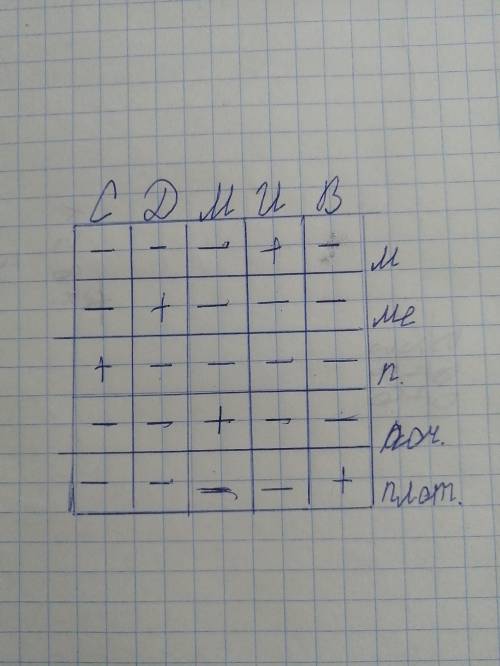 С Д М И В
− − − + − М
− + − − − Ме
+ − − − − п.
− − + − − поч.
− − − − + плот.